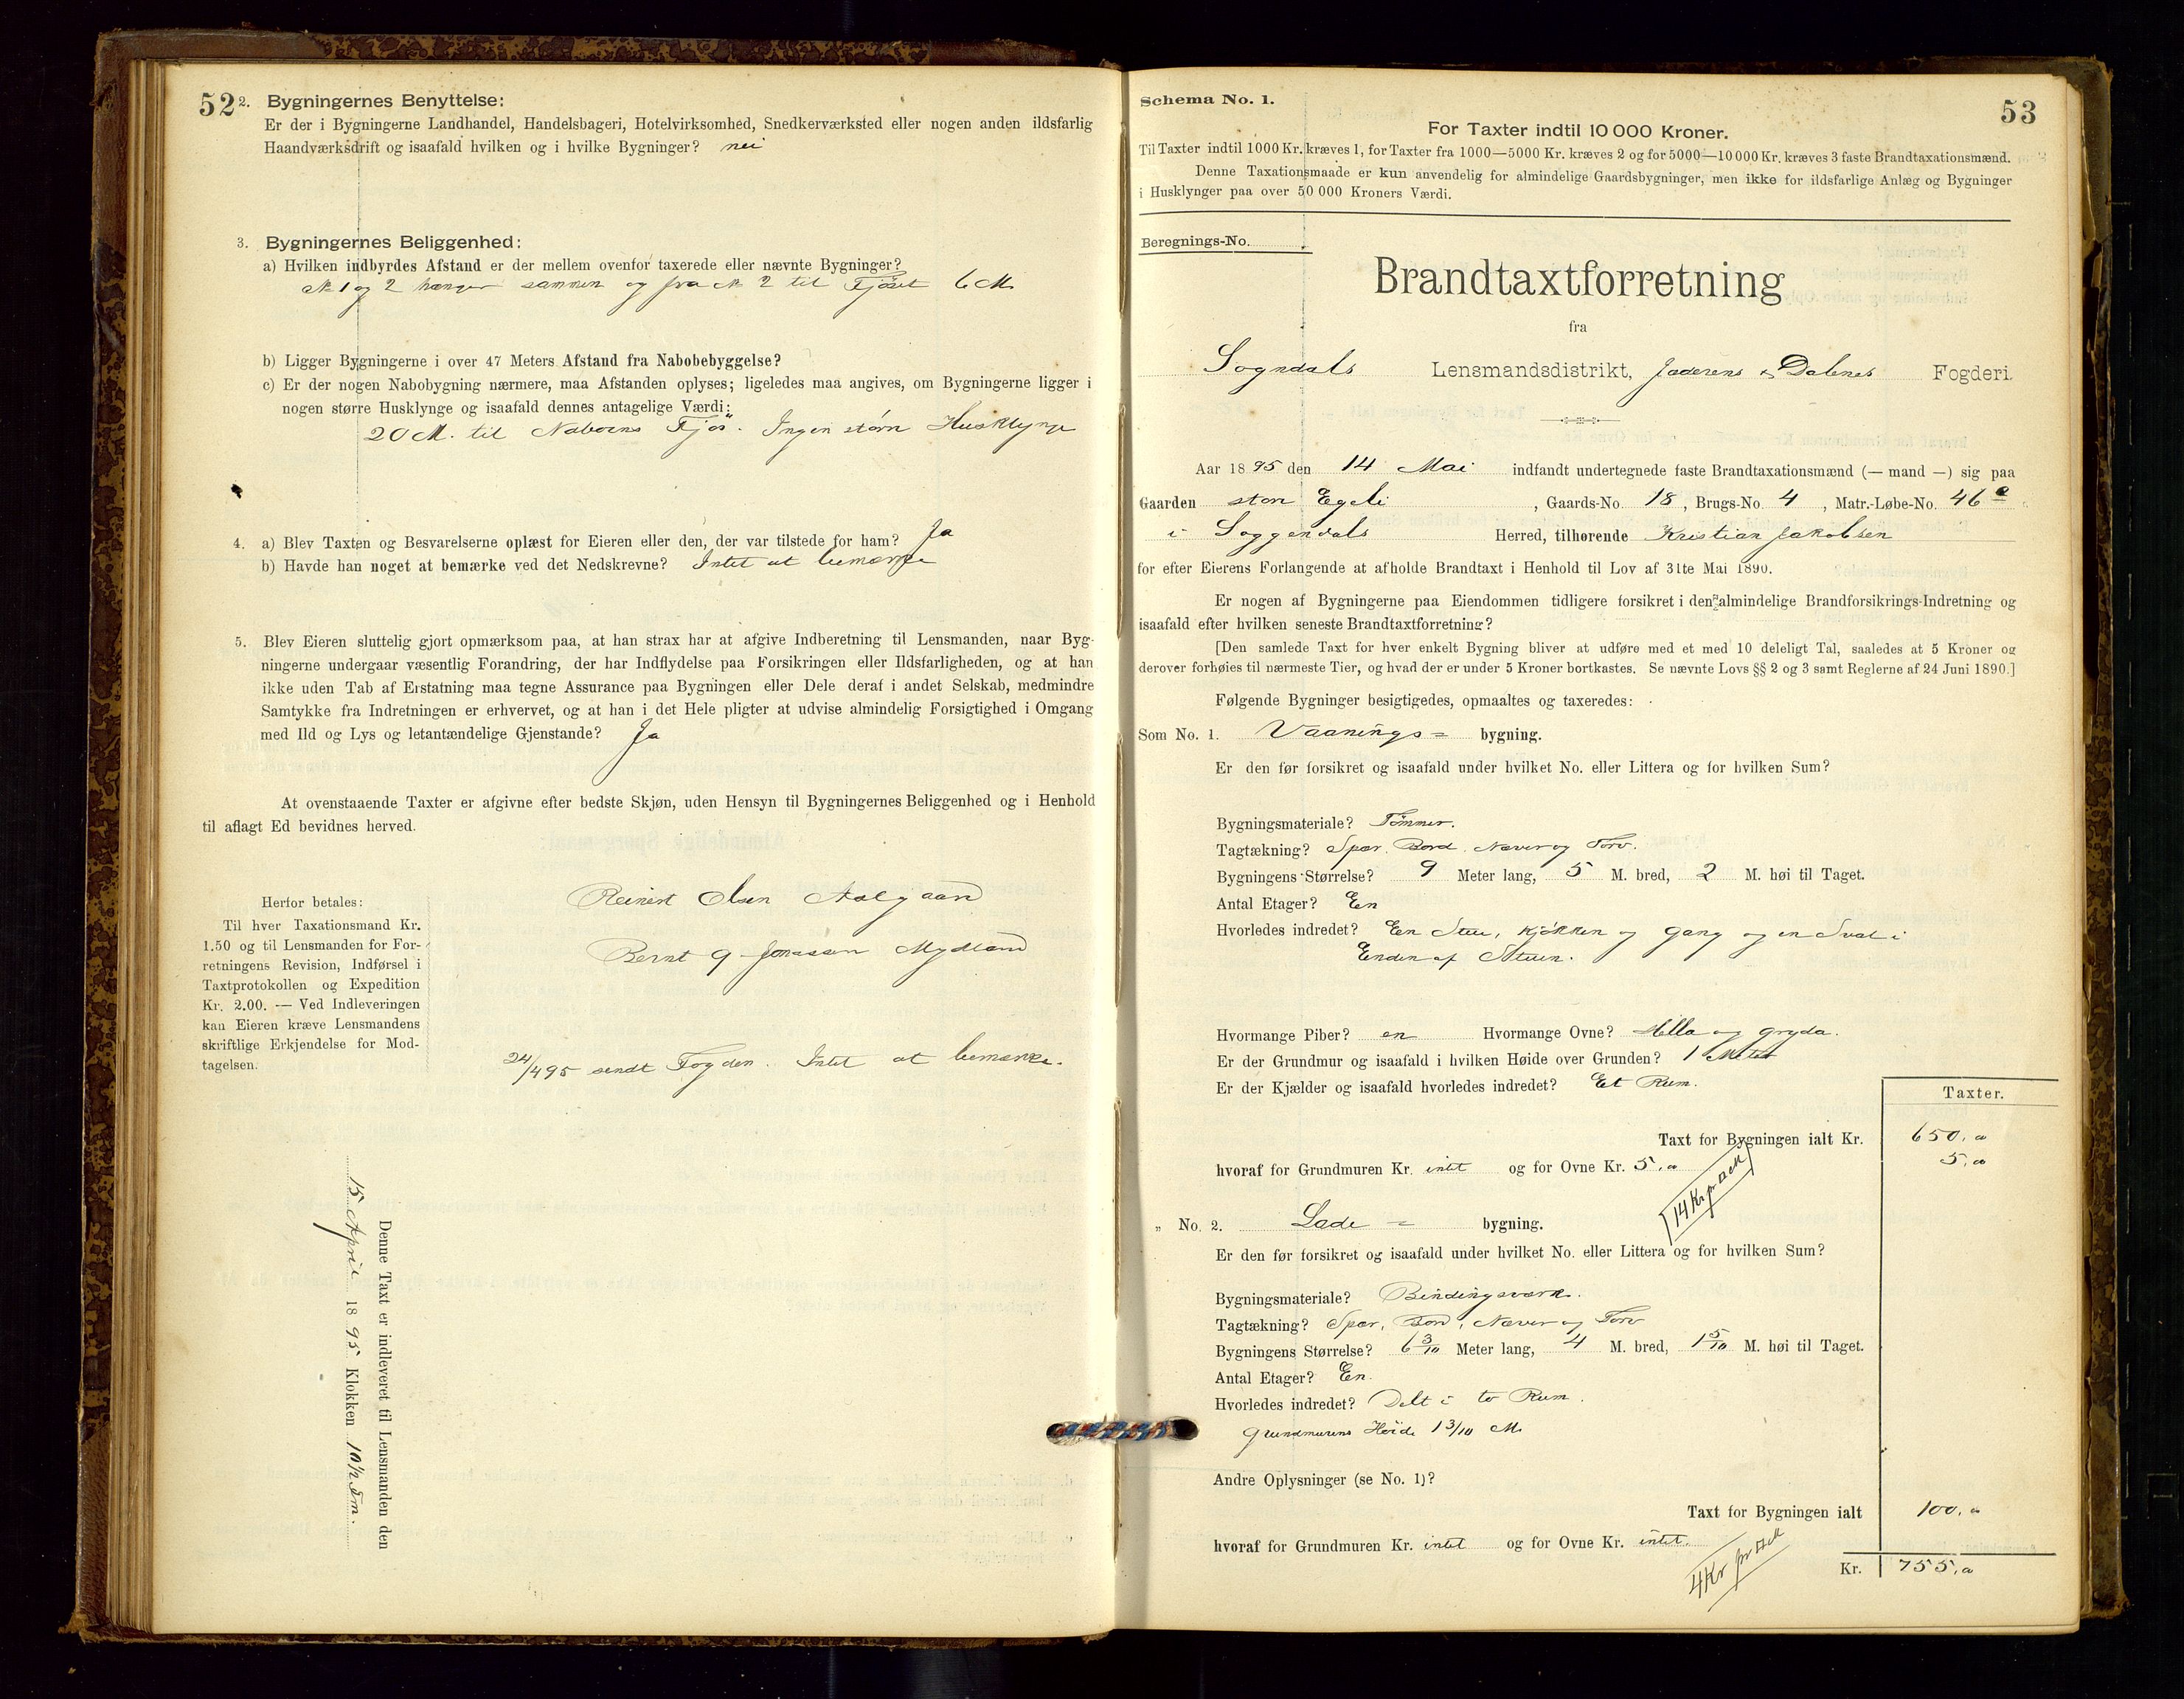 52
2. Bygningernes Benyttelse:
Er der i Bygningerne Landhandel, Handelsbageri, Hotelvirksomhed, Snedkerværksted eller nogen anden ildsfarlig
Haandværksdrift og isaafald hvilken og i hvilke Bygninger? nei
3. Bygningernes Beliggenhed:
a) Hvilken indbyrdes Afstand er der mellem ovenfor taxerede eller nævnte Bygninger?
№ 1 og 2 hænger sammen og fra № 2 til Fjøset 6 M.
b) Ligger Bygningerne i over 47 Meters Afstand fra Nabobebyggelse?
c) Er der nogen Nabobygning nærmere, maa Afstanden oplyses; ligeledes maa angives, om Bygningerne ligger i
nogen større Husklynge og isaafald dennes antagelige Værdi:
20 M. til Naboens Fjøs. Ingen større Husklynge
4. a) Blev Taxten og Besvarelserne oplæst for Eieren eller den, der var tilstede for ham? Ja
b) Havde han noget at bemærke ved det Nedskrevne? Intet at bemærke
5. Blev Eieren sluttelig gjort opmærksom paa, at han strax har at afgive Indberetning til Lensmanden, naar Byg-
ningerne undergaar væsentlig Forandring, der har Indflydelse paa Forsikringen eller Ildsfarligheden, og at han
ikke uden Tab af Erstatning maa tegne Assurance paa Bygningen eller Dele deraf i andet Selskab, medmindre
Samtykke fra Indretningen er erhvervet, og at han i det Hele pligter at udvise almindelig Forsigtighed i Omgang
med Ild og Lys og letantændelige Gjenstande? Ja
At ovenstaaende Taxter er afgivne efter bedste Skjøn, uden Hensyn til Bygningernes Beliggenhed og i Henhold
til aflagt Ed bevidnes herved.
Reinert Olsen Aalgaard
Bernt G Jonassen Mydland
Herfor betales:
Til hver Taxationsmand Kr.
1.50 og til Lensmanden for For-
retningens Revision, Indførsel i
Taxtprotokollen og Expedition
Kr. 2.00. — Ved Indleveringen
kan Eieren kræve Lensmandens
skriftlige Erkjendelse for Mod-
tagelsen.
24/4 95 sendt Fogden. Intet at bemærke.
Denne Taxt er indleveret til Lensmanden den
15 April 1895 Klokken 10½ Fm.
Schema No. 1.
53
For Taxter indtil 10 000 Kroner.
Til Taxter indtil 1000 Kr. kræves 1, for Taxter fra 1000—5000 Kr. kræves 2 og for 5000—10 000 Kr. kræves 3 faste Brandtaxationsmænd.
Denne Taxationsmaade er kun anvendelig for almindelige Gaardsbygninger, men ikke for ildsfarlige Anlæg og Bygninger
i Husklynger paa over 50 000 Kroners Værdi.
Beregnings-No.
Brandtaxtforretning
fra
Sogndals Lensmandsdistrikt, Jæderens & Dalenes Fogderi.
Aar 1895 den 14 Mai indfandt undertegnede faste Brandtaxationsmænd (— mand —) sig paa
Gaarden store Egeli, Gaards-No. 18, Brugs-No. 4, Matr.-Løbe-No. 46
i Soggendals Herred, tilhørende Kristian Jakobsen
for efter Eierens Forlangende at afholde Brandtaxt i Henhold til Lov af 31te Mai 1890.
Er nogen af Bygningerne paa Eiendommen tidligere forsikret i den almindelige Brandforsikrings-Indretning og
isaafald efter hvilken seneste Brandtaxtforretning?
[Den samlede Taxt for hver enkelt Bygning bliver at udføre med et med 10 deleligt Tal, saaledes at 5 Kroner og
derover forhøies til nærmeste Tier, og hvad der er under 5 Kroner bortkastes. Se nævnte Lovs §§ 2 og 3 samt Reglerne af 24 Juni 1890.]
Følgende Bygninger besigtigedes, opmaaltes og taxeredes:
Som No. 1. Vaanings= bygning.
Er den før forsikret og isaafald under hvilket No. eller Littera og for hvilken Sum?
Bygningsmateriale? Tømmer.
Tagtækning? Spær. Bord. Næver og Torv.
Bygningens Størrelse? 9 Meter lang, 5 M. bred, 2 M. høi til Taget.
Antal Etager? En
Hvorledes indredet? Een Stue, Kjøkken og Gang og en Sval i
Enden af Stuen.
Hvormange Piber? en Hvormange Ovne? Hella og gryda.
Er der Grundmur og isaafald i hvilken Høide over Grunden? 1 Meter
Er der Kjælder og isaafald hvorledes indredet? Et Rum.
Taxter.
Taxt for Bygningen ialt Kr. 650, „
hvoraf for Grundmuren Kr. intet og for Ovne Kr. 5, „ 5, „
14 Kr pr □ M
„ No. 2. Lade = bygning.
Er den før forsikret og isaafald under hvilket No. eller Littera og for hvilken Sum?
Bygningsmateriale? Bindingsværk.
Tagtækning? Spær, Bord, Næver og Torv
Bygningens Størrelse? 6 3/10 Meter lang, 4 M. bred, 1 5/10 M. høi til Taget.
Antal Etager? En.
Hvorledes indredet? Delt i to Rum.
Grundmurens Høide 1 3/10 M.
Andre Oplysninger (se No. 1)?
Taxt for Bygningen ialt 100, „
hvoraf for Grundmuren Kr. intet og for Ovne Kr. intet.
4 Kr pr □ M
Kr. 755, „